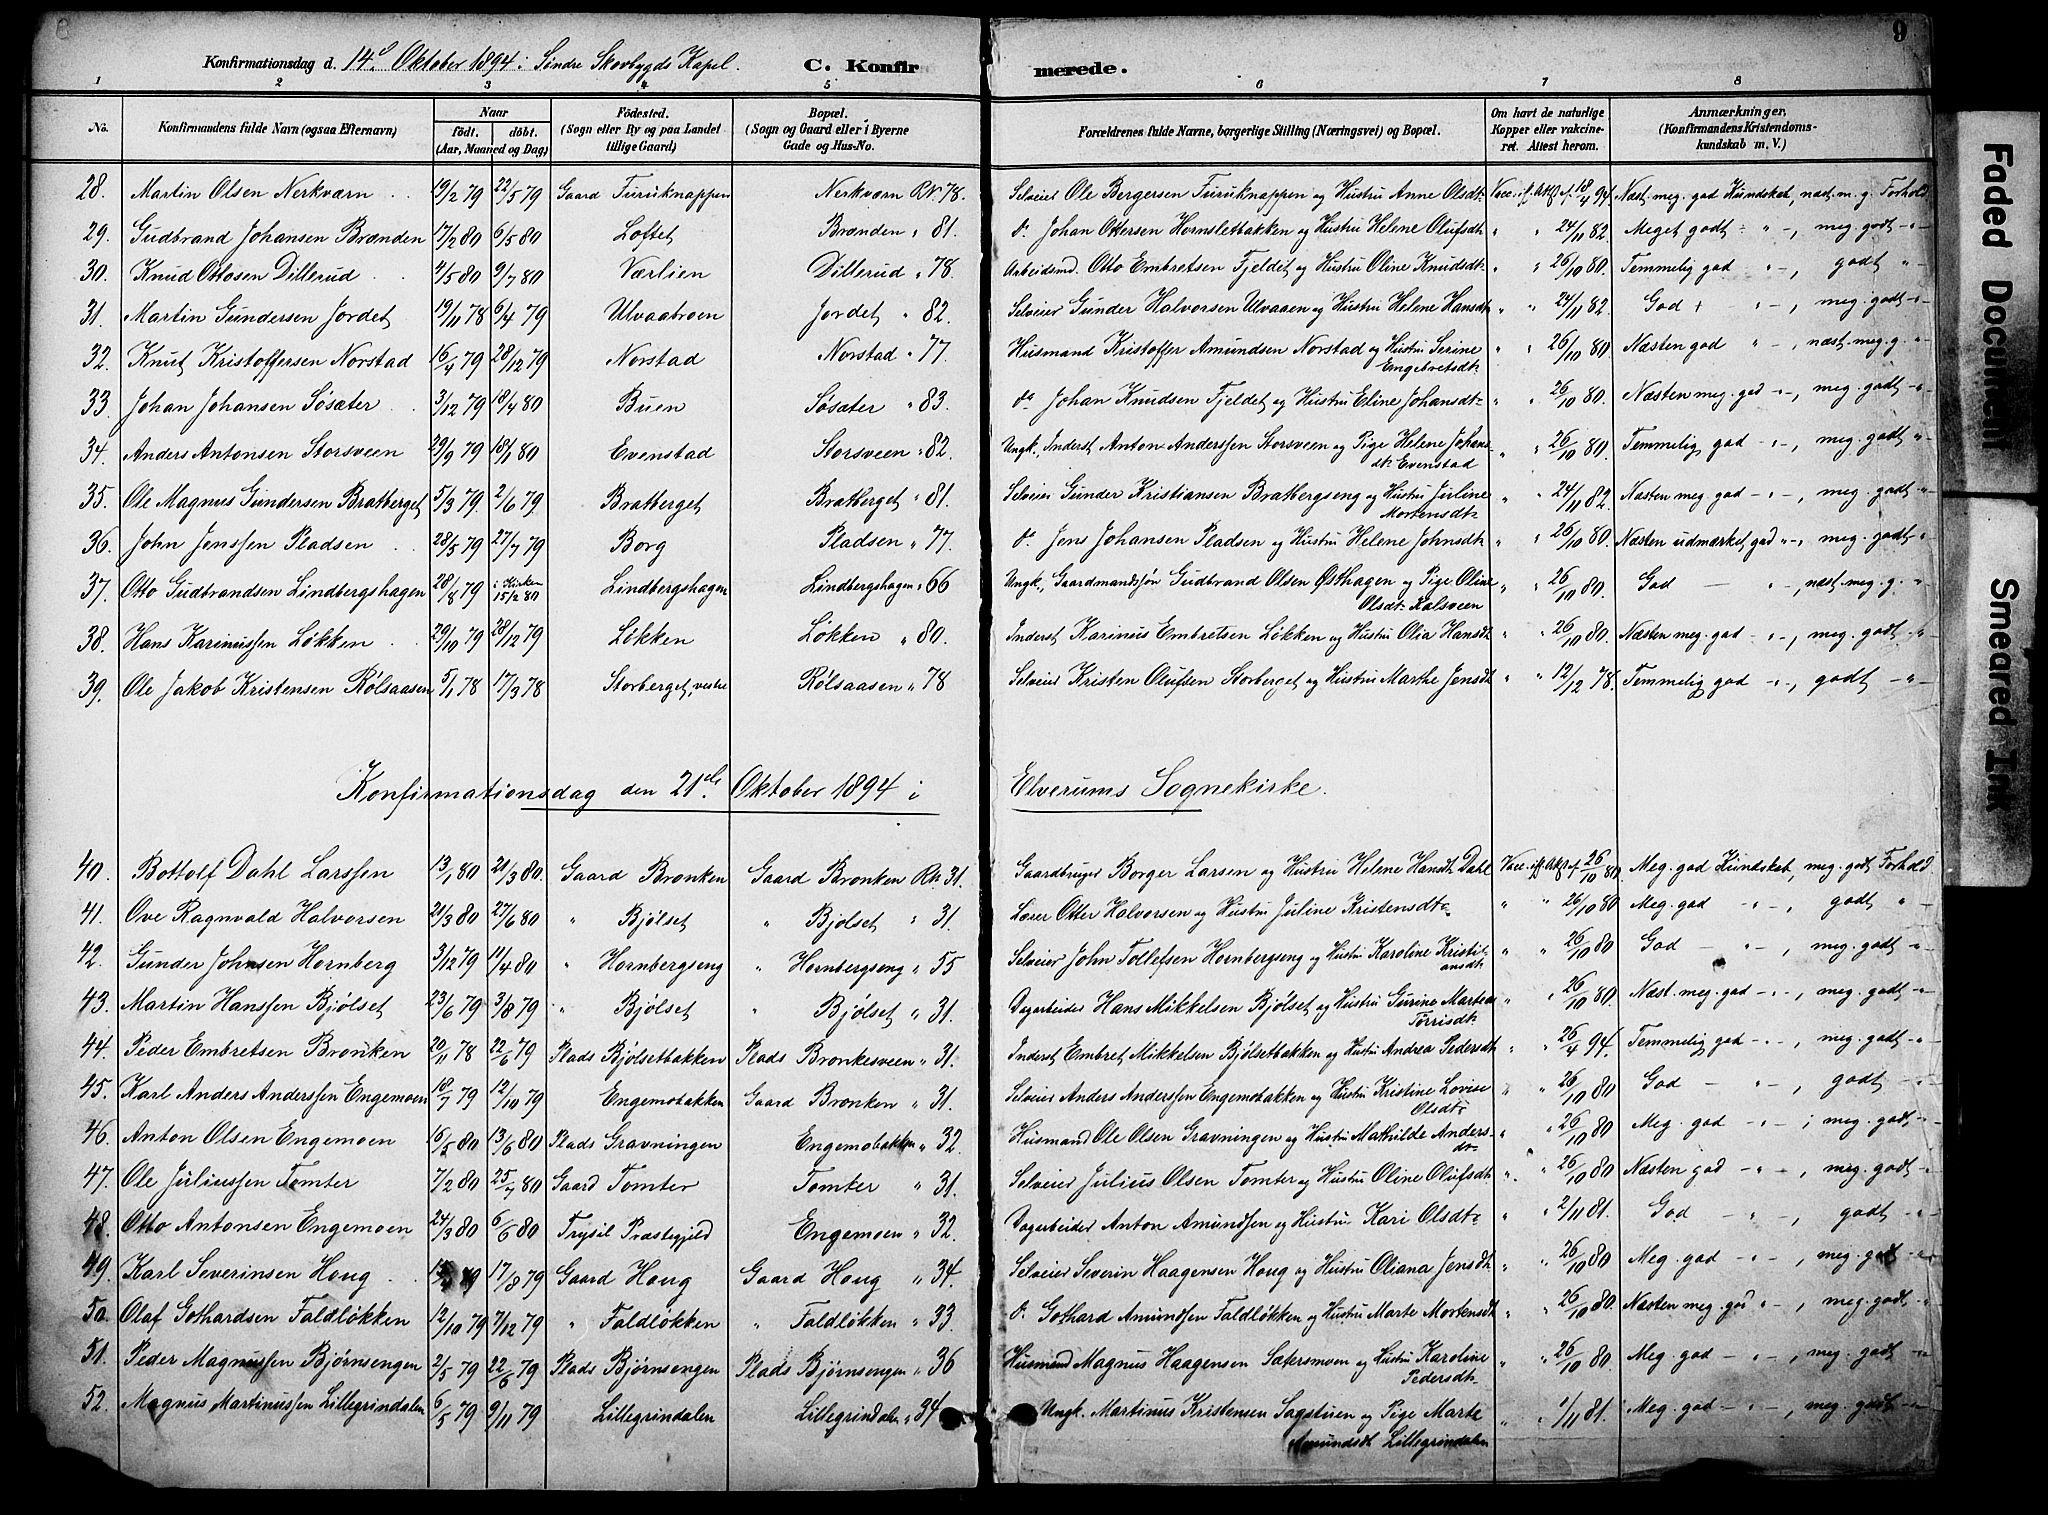 8
9
Konfirmationsdag d. 14de Oktober 1894 i Søndre Skovbygds Kapel.
C. Konfirmerede.
1 2 3 4 5 6 7 8
No. Konfirmandens fulde Navn (ogsaa Efternavn) Naar født. døbt. (Aar, Maaned og Dag) Födested. (Sogn eller By og paa Landet tillige Gaard) Bopæl. (Sogn og Gaard eller i Byerne Gade og Hus-No. Forældrenes fulde Navne, borgerlige Stilling (Næringsvei) og Bopæl. Om havt de naturlige Kopper eller vakcineret. Attest herom. Anmærkninger, (Konfirmandens Kristendomskundskab m. V.)
28. Martin Olsen Nerkværn 19/2 79 22/5 79 Gaard Furuknappen Nerkværn RN. 78. Selveier Ole Bergersen Furuknappen og Hustru Anne Olsdt. Vacc. if. Att. f. 18/4 94. Næst. meg. god Kundskab, næst. m. g. Forhold
29. Gudbrand Johansen Brænden 17/2 80 6/5 80 Loftet Brænden " 81. do Johan Ottersen Hornsletbakken og Hustru Helene Olufsdt. " " 24/11 82. Meget godt - " -, meg. godt - " -
30. Knud Ottosen Dillerud 4/5 80 9/7 80 Værlien Dillerud " 78. Arbeidsmd. Otto Embretsen Fjeldet og Hustru Oline Knudsdt. " " 26/10 80. Temmelig god " -, godt "
31. Martin Gundersen Jordet 19/11 78 6/4 79 Ulvaabroen Jordet " 82. Selveier Gunder Halvorsen Ulvaaen og Hustru Helene Hansdt. " " 24/11 82. God " " -, meg. godt - " -
32. Knut Kristoffersen Norstad 16/4 79 28/12 79 Norstad Norstad " 77. Husmand Kristoffer Amundsen Norstad og Hustru Serine Engebretsdt. " " 26/10 80. Næsten god " -, næst. meg. g. "
33. Johan Johansen Søsæter 3/12 79 18/4 80 Buen Søsæter " 83. do Johan Knudsen Fjeldet og Hustru Eline Johansdt. " " 26/10 80. Næsten meg. god - " -, meg. godt - " -
34. Anders Antonsen Storsveen 29/9 79 18/1 80 Evenstad Storsveen " 82. Ungk., Inderst Anton Anderssen Storsveen og Pige Helene Johansdt. Evenstad " " 26/10 80. Temmelig god - " -, meg. godt "
35. Ole Magnus Gundersen Bratberget 5/3 79. 2/6 79. Bratberget Bratberget " 81. Selveier Gunder Kristiansen Bratbergseng og Hustru Juline Mortensdt. " " 24/11 82. Næsten meg. god - " -, meg. godt - " -
36. John Jenssen Pladsen 28/5 79 27/7 79 Borg Pladsen " 77. do Jens Johansen Pladsen og Hustru Helene Johnsdt. " " 26/10 80. Næsten udmærket god " -, meg. godt - " -
37. Otto Gudbrandsen Lindbergshagen 28/8 79 i Kirken 15/2 80 Lindbergshagen Lindbergshagen " 66 Ungk., Gaardmandssøn Gudbrand Olsen Østhagen og Pige Oline Olsdt. Kalsveen " " 26/10 80. God — " -, næst. meg. g. "
38. Hans Karinussen Løkken 29/10 79 28/12 79 Løkken Løkken " 80. Inderst Karinus Embretsen Løkken og Hustru Olia Hansdt " " 26/10 80. Næsten meg. god - " -, meg. godt - " -
39. Ole Jakob Kristensen Rølsaasen 5/1 78 17/3 78 Storberget, vestre Rølsaasen " 78 Selveier Kristen Olufsen Storberget og Hustru Marthe Jensdt " " 12/12 78. Temmelig god - " -, godt - " -
Konfirmationsdag den 21de Oktober 1894 i Elverums Sognekirke.
40. Bottolf Dahl Larssen 13/1 80 21/3 80. Gaard Bronken Gaard Bronken RN 31. Gaardbruger Borger Larsen og Hustru Helene Hansdt. Dahl Vacc. if. Att. f. 26/10 80. Meg. god Kundskab, meg. godt Forhold.
41. Ove Ragnvald Halvorsen 21/3 80 27/6 80. " Bjølset " Bjølset " 31. Lærer Otter Halvorsen og Hustru Juline Kristensdt. " " 26/10 80 Meg. god - " -, godt "
42. Gunder Johnsen Hornberg 3/12 79 11/4 80 " Hornbergseng " Hornbergseng " 55 Selveier John Tollefsen Hornbergseng og Hustru Karoline Kristiansdt. " " 26/10 80 God — " -, meg. godt - " -
43. Martin Hanssen Bjølset 23/6 79 3/8 79 " Bjølset " Bjølset " 31. Dagarbeider Hans Mikkelsen Bjølset og Hustru Gurine Martea Torrisdt. " " 26/10 80. Næst. meg. god - " -, meg. godt - " -
44. Peder Embretsen Bronken 20/11 78 22/6 79 Plads Bjølsetbakken Plads Bronkesveen " 31. Inderst Embret Mikkelsen Bjølsetbakken og Hustru Andrea Pedersdt. " " 26/4 94. Temmelig god - " -, meg. godt - " -
45. Karl Anders Anderssen Engemoen 18/7 79 12/10 79 Engemobakken Gaard Bronken " 31. Selveier Anders Anderssen Engemobakken og Hustru Kristine Lovise Olsdt. " " 26/10 80 God — " -, godt - " -
46. Anton Olsen Engemoen 16/5 80 13/6 80 Plads Gravningen Engemobakken " 32. Husmand Ole Olsen Gravningen og Hustru Mathilde Andersdt. " " 26/10 80 Meg. god - " -, meg. godt, - " -
47. Ole Juliussen Tomter 7/2 80 25/4 80 Gaard Tomter Tomter " 31. Selveier Julius Olsen Tomter og Hustru Oline Olufsdt. " " 26/10 80 Næsten god - " -, meg. godt - " -
48. Otto Antonsen Engemoen 24/3 80 6/6 80 Trysil Præstegjeld Engemoen " 32. Dagarbeider Anton Amundsen og Hustru Kari Olsdt. " " 2/11 81. God — " -, godt - " -
49. Karl Severinsen Houg 79 17/8 79 Gaard Houg Gaard Houg " 34. Selveier Severin Haagensen Houg og Hustru Oliana Jensdt. " " 26/10 80 Meg. god - " -, meg. godt - " -
50. Olaf Gothardsen Faldløkken 12/10 79 7/12 79 " Faldløkken " Faldløkken " 33. do Gothard Amundsen Faldløkken og Hustru Marte Mortensdt. " " 26/10 80. Næsten meg. god " -, meg. godt - " -
51. Peder Magnussen Bjørnsengen 2/5 79 22/6 79 Plads Bjørnsengen Plads Bjørnsengen " 36 Husmand Magnus Haagensen Sætersmoen og Hustru Karoline Pedersdt. " " 26/10 80. Meg. god - " -, meg. godt - " -
52. Magnus Martinussen Lillegrindalen 6/5 79 9/11 79 Lillegrindalen Lillegrindalen " 34 Ungk. Martinus Kristensen Sagstuen og Pige Marte Amundsdt. Lillegrindalen " " 1/11 81. Meg. god - " -, meg. godt - " -
Faded Document
Smeared Ink